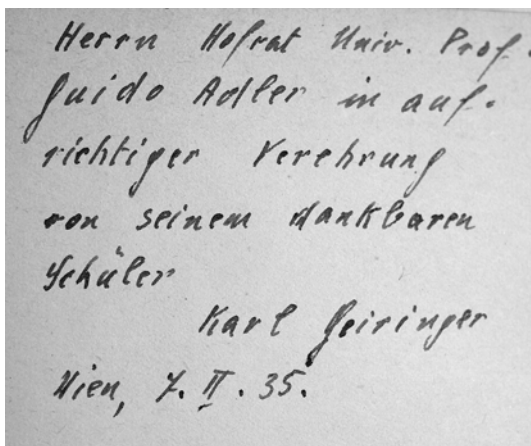 Herrn Hofrat Univ. Prof.
Guido Adler in auf-
richtiger Verehrung
von seinem dankbaren
Schüler
Karl Geiringer
Wien, 7. II. 35.